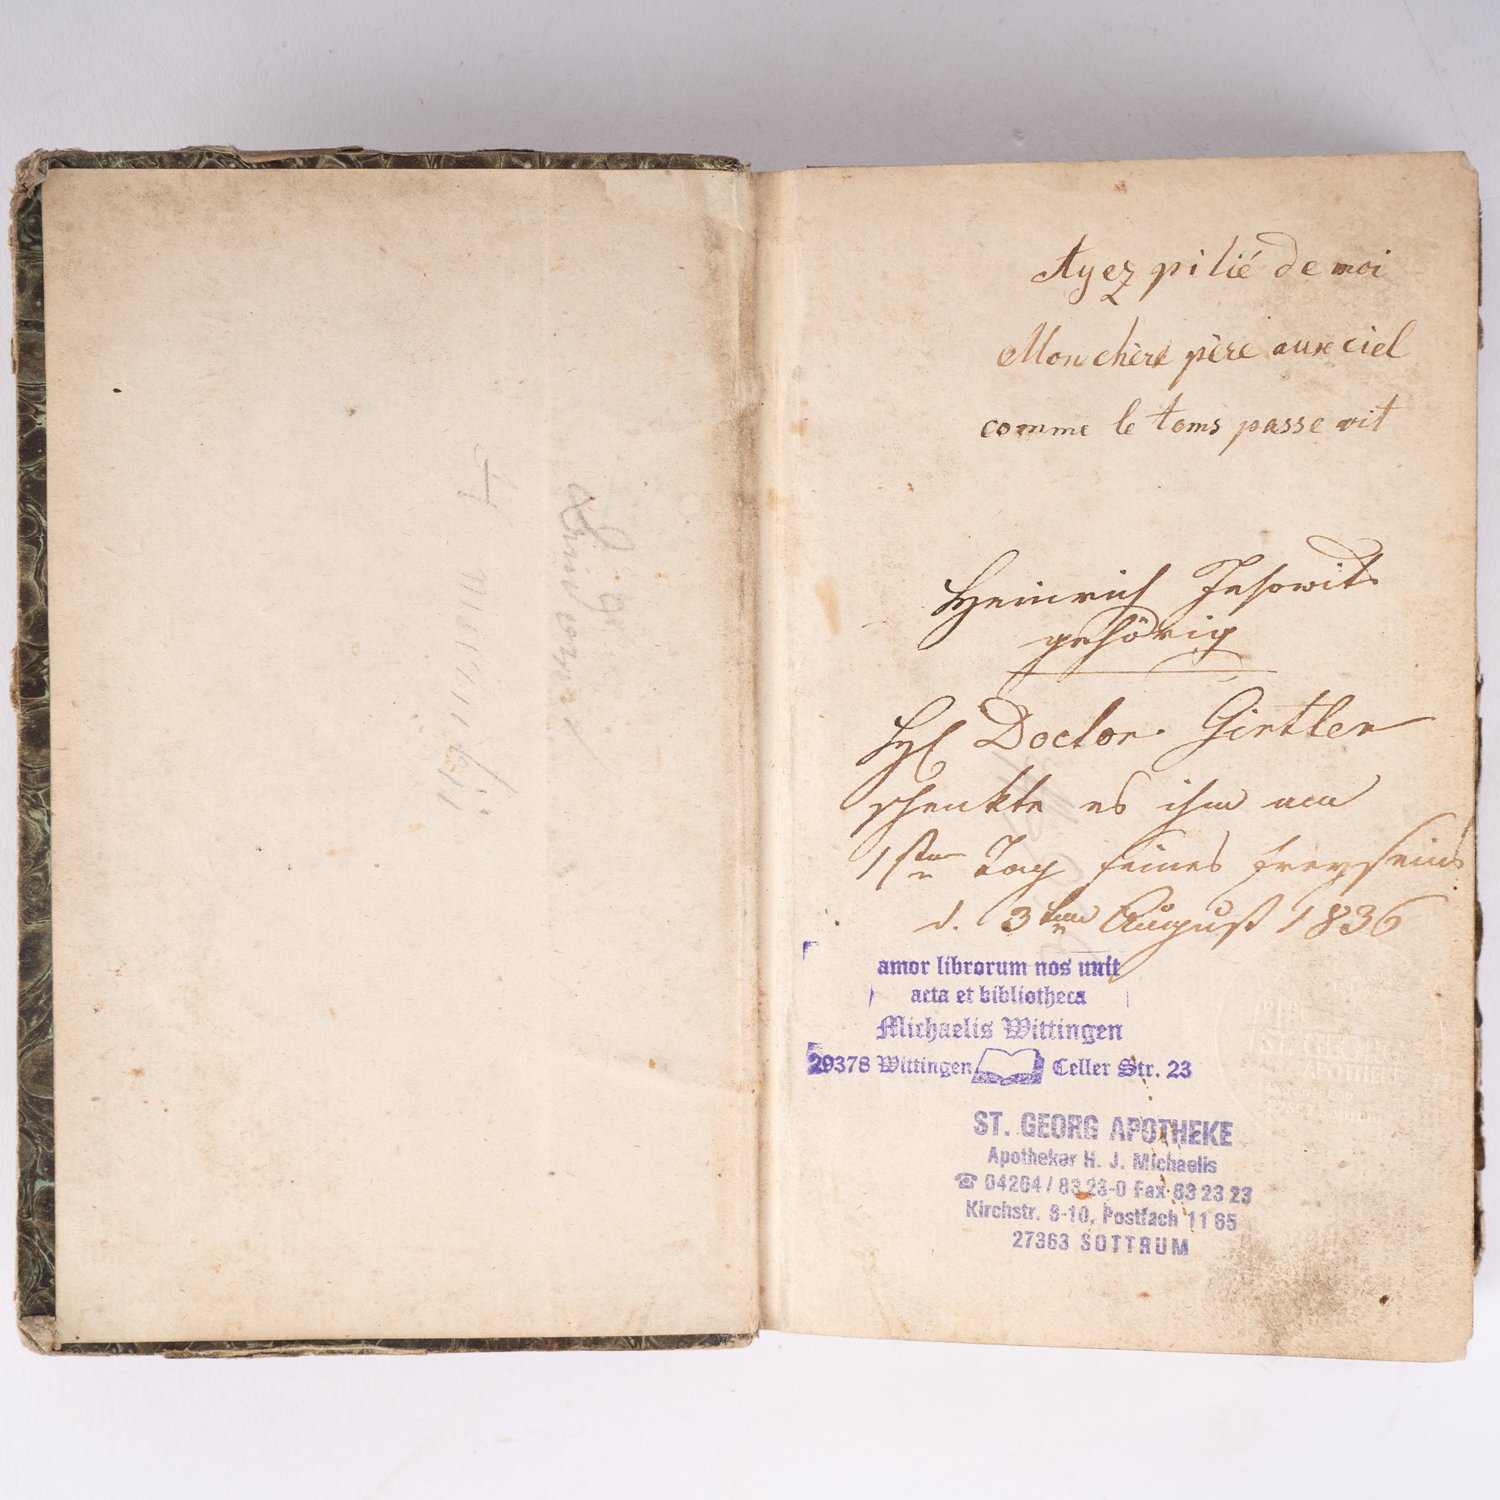 Ayez pitié de moi
Mon chère père aux ciel
comme le tems passe vit
Heinrich Jesowits
gehörig
Doctor. Girtler
schenkte es ihm am
1sten Tag seines Freyseins
d. 3ten August 1836
amor librorum nos unit
acta et bibliotheca
Michaelis Wittingen
29378 Wittingen Celler Str. 23
ST. GEORG APOTHEKE
Apotheker H. J. Michaelis
☎ 04264 / 83 23-0 Fax 83 23 23
Kirchstr. 8-10, Postfach 11 65
27363 SOTTRUM